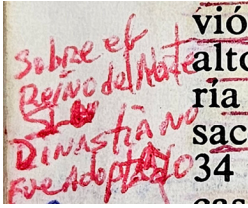 Sobre el
Reino del Norte
DINASTIA NO
FUE ADOPTADO
vió
alto
ría
sac
34